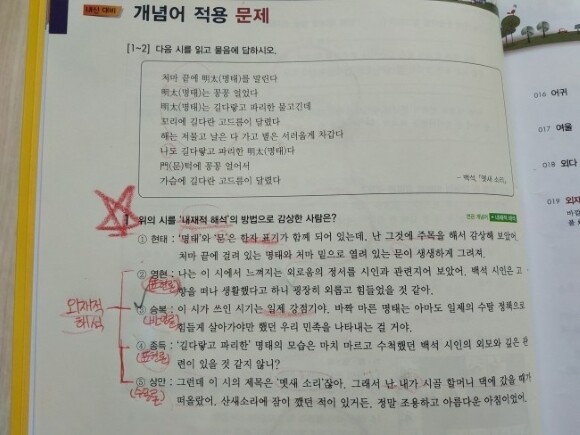 내신 대비 개념어 적용 문제
[1~2] 다음 시를 읽고 물음에 답하시오.
처마 끝에 明太(명태)를 말린다
明太(명태)는 꽁꽁 얼었다
明太(명태)는 길다랗고 파리한 물고긴데
꼬리에 길다란 고드름이 달렸다
해는 저물고 날은 다 가고 볕은 서러웁게 차갑다
나도 길다랗고 파리한 明太(명태)다
門(문)턱에 꽁꽁 얼어서
가슴에 길다란 고드름이 달렸다
- 백석, 「멧새 소리」
1 위의 시를 '내재적 해석'의 방법으로 감상한 사람은?
① 현태 : '명태'와 '문'은 한자 표기가 함께 되어 있는데, 난 그것에 주목을 해서 감상해 보았어.
처마 끝에 걸려 있는 명태와 처마 밑으로 열려 있는 문이 생생하게 그려져.
② 영현 : 나는 이 시에서 느껴지는 외로움의 정서를 시인과 관련지어 보았어. 백석 시인은 고
(표현론) 향을 떠나 생활했다고 하니 굉장히 외롭고 힘들었을 것 같아.
외재적 해석
③ 승복 : 이 시가 쓰인 시기는 일제 강점기야. 바짝 마른 명태는 아마도 일제의 수탈 정책으로
(반영론) 힘들게 살아가야만 했던 우리 민족을 나타내는 걸 거야.
④ 중득 : '길다랗고 파리한' 명태의 모습은 마치 마르고 수척했던 백석 시인의 외모와 깊은 관
(표현론) 련이 있을 것 같지 않니?
⑤ 상만 : 그런데 이 시의 제목은 '멧새 소리'잖아. 그래서 난 내가 시골 할머니 댁에 갔을 때가
(수용론) 떠올랐어. 산새소리에 잠이 깼던 적이 있거든. 정말 조용하고 아름다운 아침이었어.
016 어귀
017 여울
018 외다
019 외재